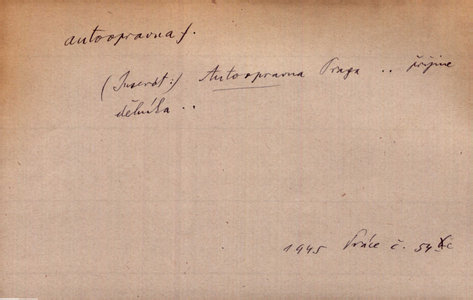 autoopravna f.
(Inserát:) Autoopravna Praga .. přijme
dělníka ..
1945 Práce č. 54